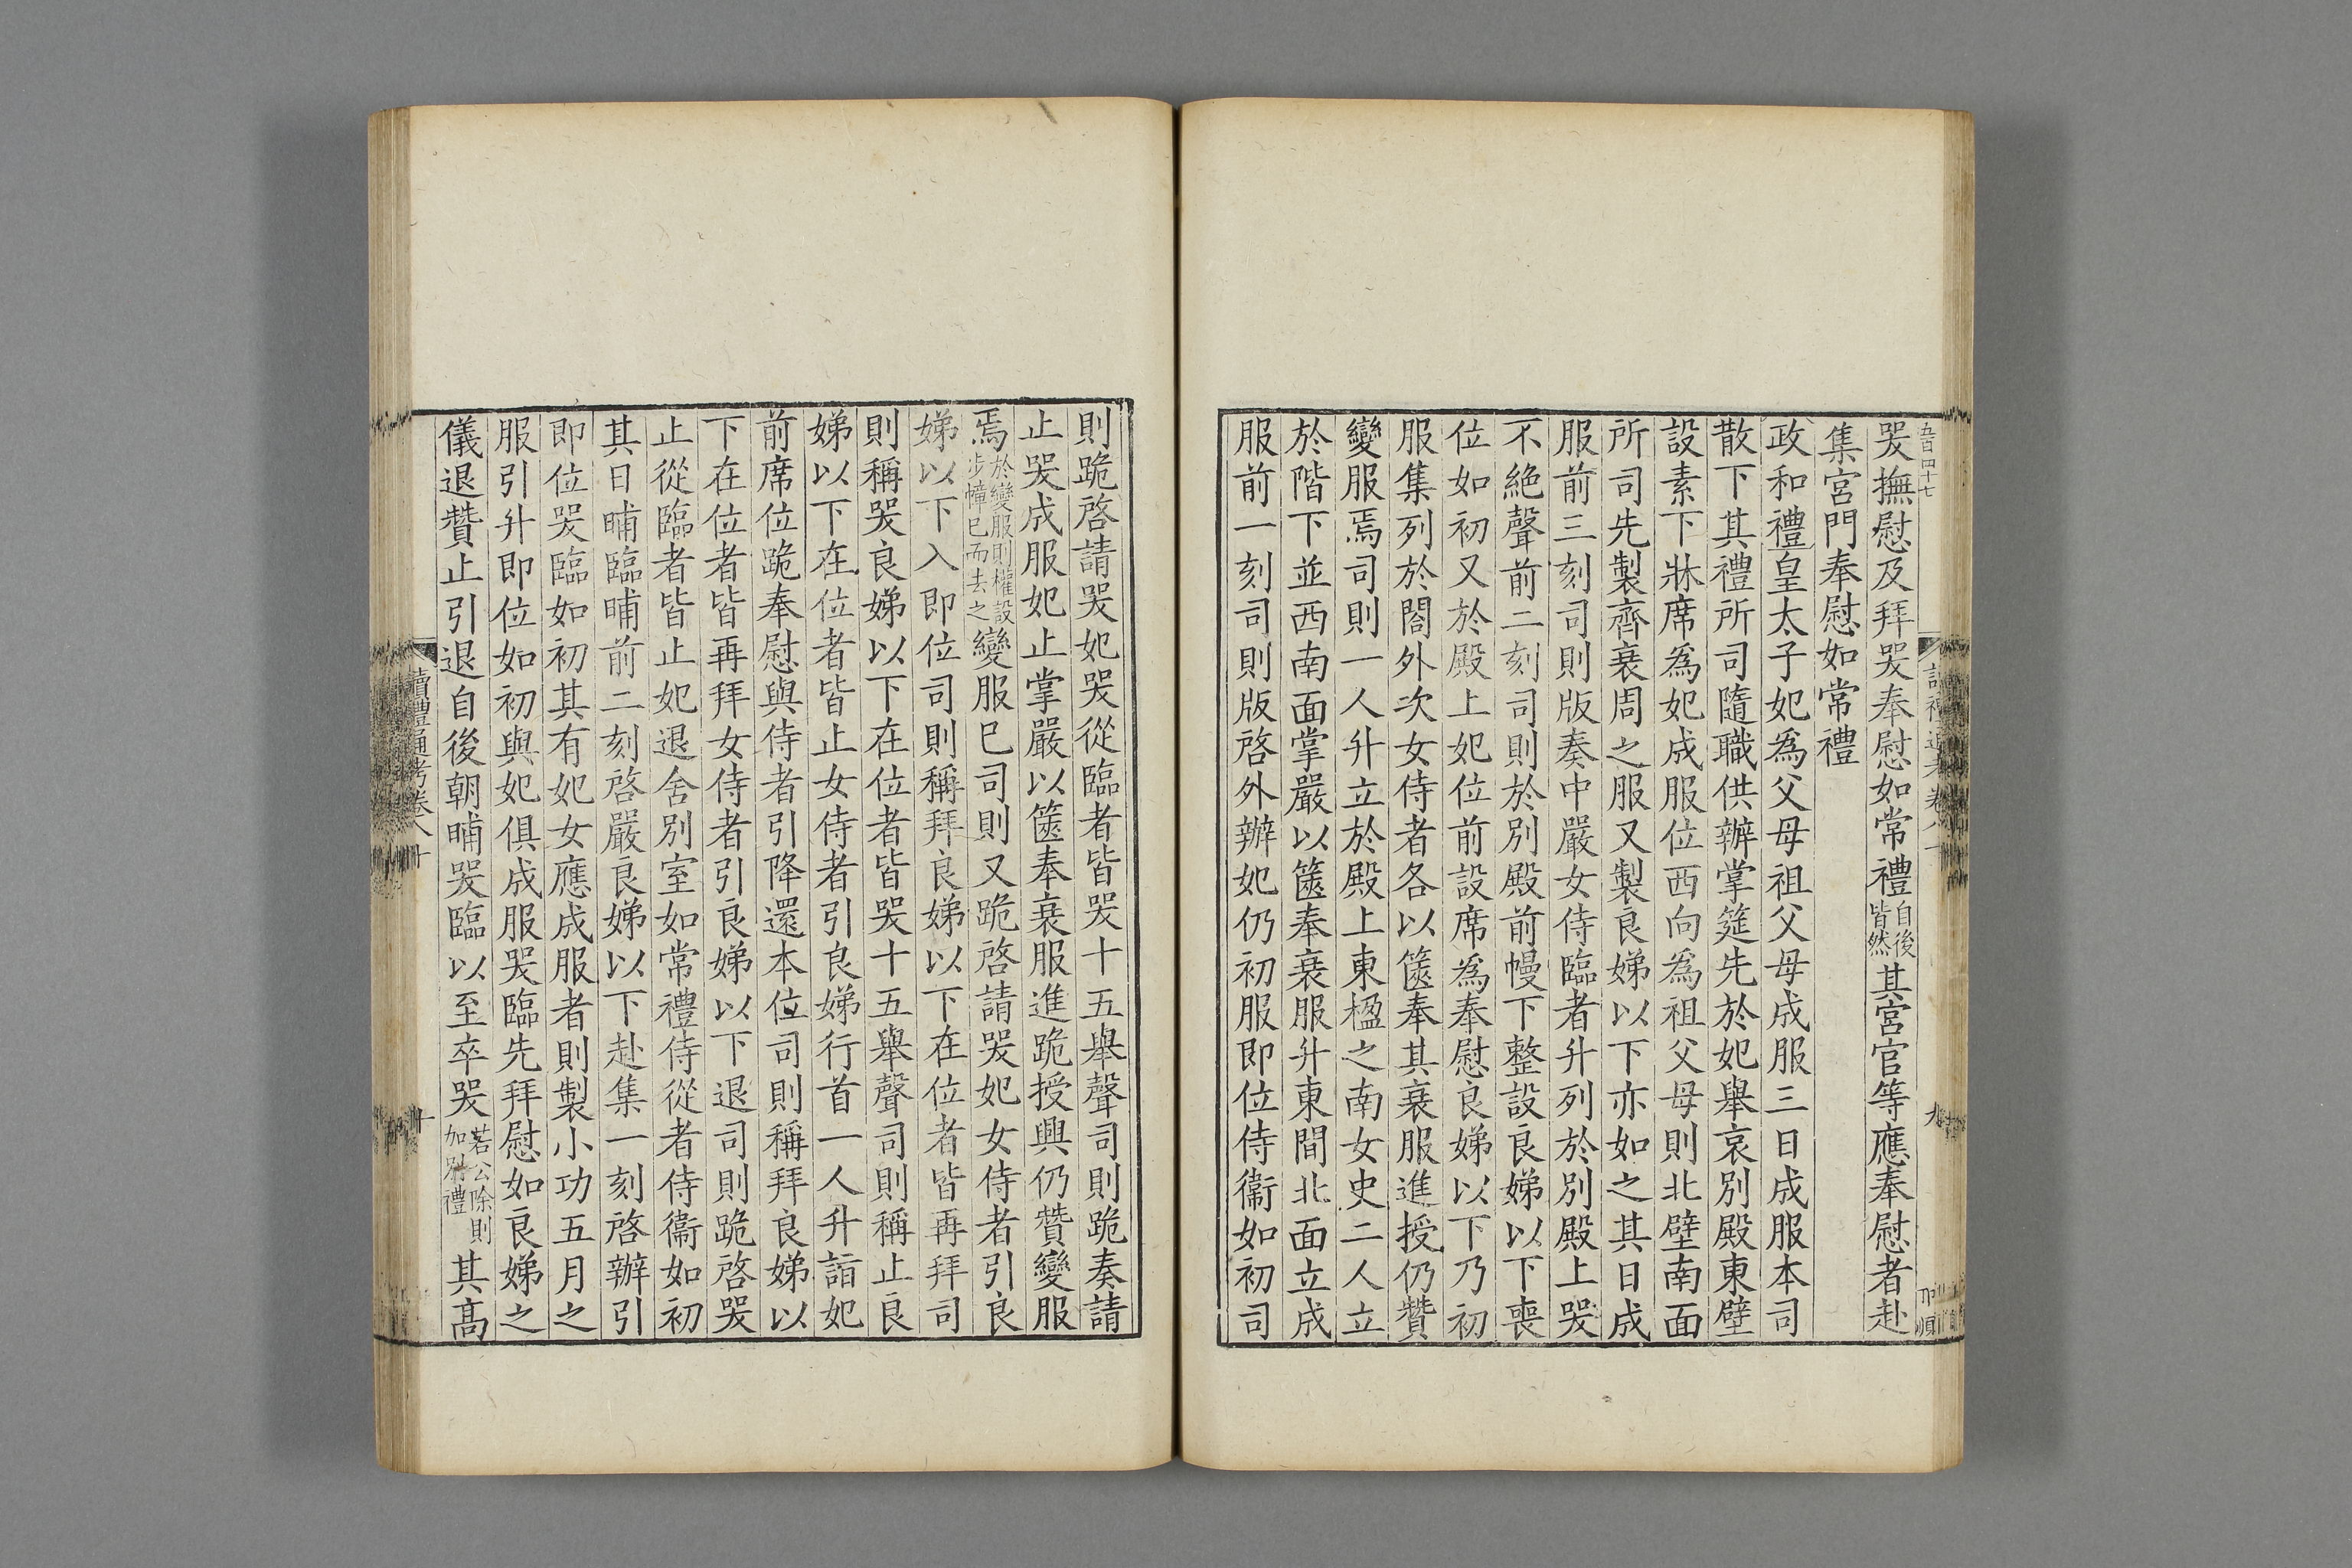 五百四十七
哭撫慰及拜哭奉慰如常禮自後皆然其宮官等應奉慰者赴
集宮門奉慰如常禮
政和禮皇太子妃為父母祖父母成服三日成服本司
散下其禮所司隨職供辦掌筵先於妃舉哀別殿東壁
設素下牀席為妃成服位西向為祖父母則北壁南面
所司先製齊衰周之服又製良娣以下亦如之其日成
服前三刻司則版奏中嚴女侍臨者升列於別殿上哭
不絕聲前二刻司則於別殿前幔下整設良娣以下喪
位如初又於殿上妃位前設席為奉慰良娣以下乃初
服集列於閤外次女侍者各以篋奉其衰服進授仍贊
變服焉司則一人升立於殿上東楹之南女史二人立
於階下並西南面掌嚴以篋奉衰服升東間北面立成
服前一刻司則版啓外辦妃仍初服即位侍衞如初司
則跪啓請哭妃哭從臨者皆哭十五舉聲司則跪奏請
止哭成服妃止掌嚴以篋奉衰服進跪授興仍贊變服
焉於變服則權設步幛巳而去之變服巳司則又跪啓請哭妃女侍者引良
娣以下入即位司則稱拜良娣以下在位者皆再拜司
則稱哭良娣以下在位者皆哭十五舉聲司則稱止良
娣以下在位者皆止女侍者引良娣行首一人升詣妃
前席位跪奉慰與侍者引降還本位司則稱拜良娣以
下在位者皆再拜女侍者引良娣以下退司則跪啓哭
止從臨者皆止妃退舍別室如常禮侍從者侍衞如初
其日晡臨晡前二刻啓嚴良娣以下赴集一刻啓辦引
即位哭臨如初其有妃女應成服者則製小功五月之
服引升即位如初與妃俱成服哭臨先拜慰如良娣之
儀退贊止引退自後朝晡哭臨以至卒哭若公除則如別禮其高
讀禮通考卷八十
十